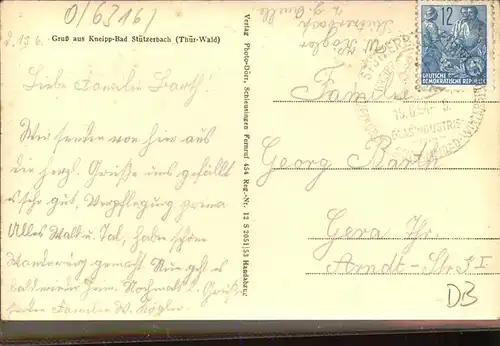 0/6316
Gruß aus Kneipp-Bad Stützerbach (Thür-Wald)
Liebe Familie Barth!
Wir senden von hier aus
die herzl. Grüße uns gefällt
es sehr gut, Verpflegung prima
Alles Wald u. Tal, haben schöne
Wanderung gemacht. Nun geht es
bald wieder heim. Nochmals Grüße
Familie W. Kögler
Verlag Photo-Dörr, Schleusingen Fernruf 454 Reg.-Nr. 12 S 2051/53 Handabzug
W. Kögler
Stützerbach
12
DEUTSCHE
DEMOKRATISCHE REPUBLIK
GLASINDUSTRIE
Familie
Georg Barth
Gera Thr.
Arndt-Str. 5 I
DB